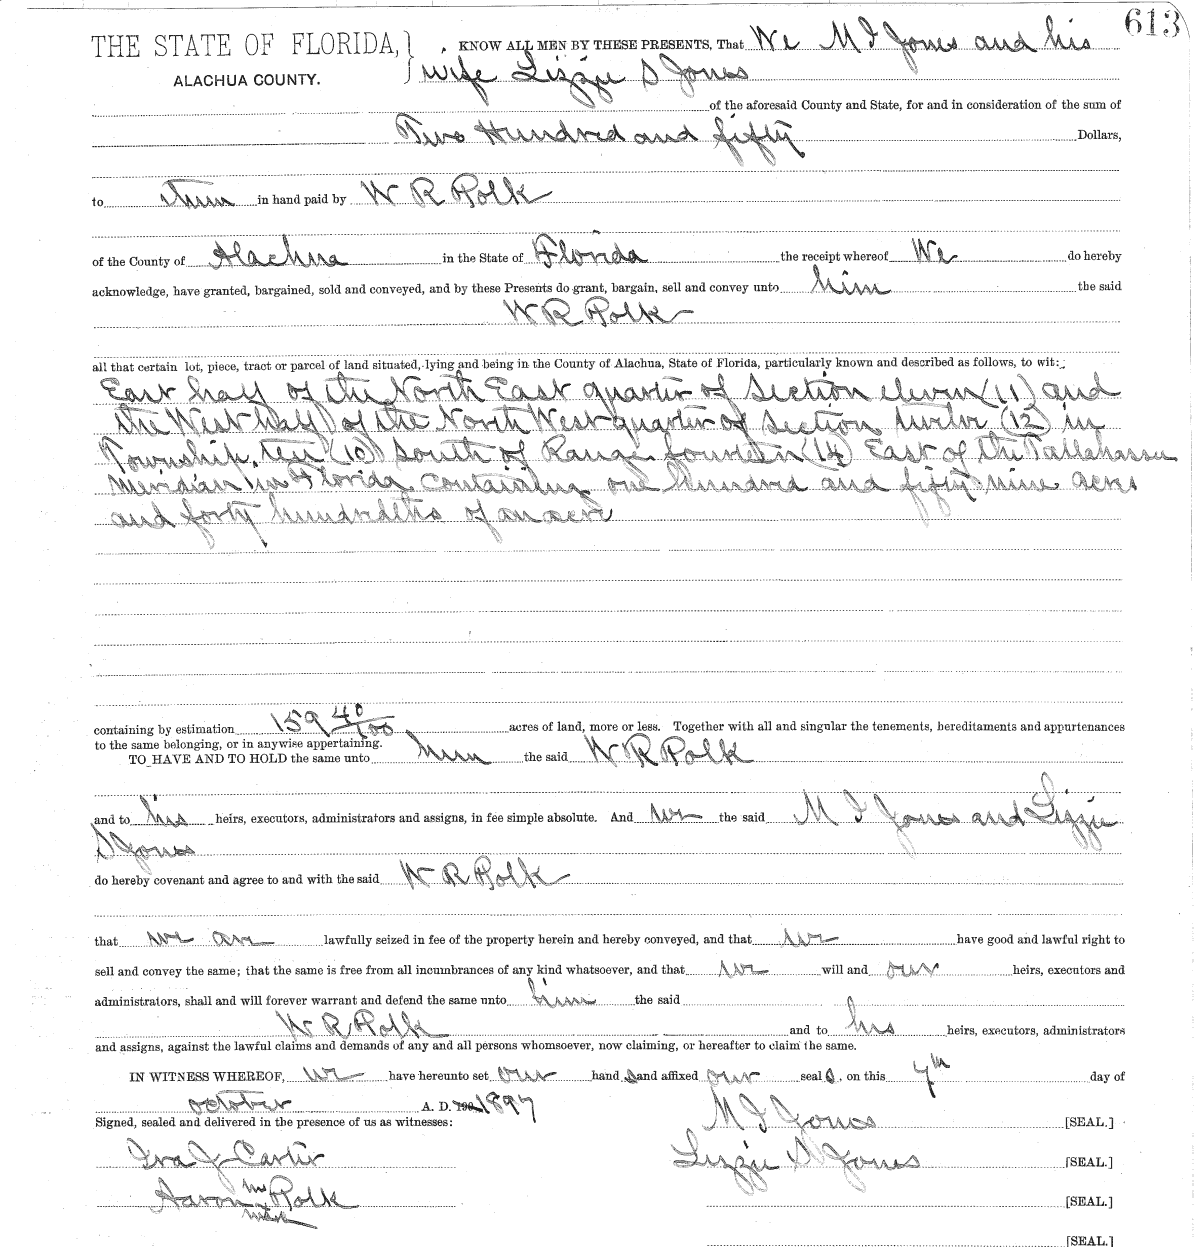 613
THE STATE OF FLORIDA, KNOW ALL MEN BY THESE PRESENTS, That We M I Jones and his
ALACHUA COUNTY. wife Lizzie S Jones
of the aforesaid County and State, for and in consideration of the sum of
Two Hundred and fifty Dollars,
to them in hand paid by W R Polk
of the County of Alachua in the State of Florida the receipt whereof We do hereby
acknowledge, have granted, bargained, sold and conveyed, and by these Presents do grant, bargain, sell and convey unto him the said
W R Polk
all that certain lot, piece, tract or parcel of land situated, lying and being in the County of Alachua, State of Florida, particularly known and described as follows, to wit:
East half of the North East quarter of Section eleven (11) and
the West half of the North West quarter of Section twelve (12) in
Township ten (10) South of Range fourteen (14) East of the Tallahassee
Meridian in Florida containing one hundred and fifty nine acres
and forty hundredths of an acre
containing by estimation 159 40/100 acres of land, more or less. Together with all and singular the tenements, hereditaments and appurtenances
to the same belonging, or in anywise appertaining.
TO HAVE AND TO HOLD the same unto him the said W R Polk
and to his heirs, executors, administrators and assigns, in fee simple absolute. And we the said M I Jones and Lizzie
S Jones
do hereby covenant and agree to and with the said W R Polk
that we are lawfully seized in fee of the property herein and hereby conveyed, and that we have good and lawful right to
sell and convey the same; that the same is free from all incumbrances of any kind whatsoever, and that we will and our heirs, executors and
administrators, shall and will forever warrant and defend the same unto him the said
W R Polk and to his heirs, executors, administrators
and assigns, against the lawful claims and demands of any and all persons whomsoever, now claiming, or hereafter to claim the same.
IN WITNESS WHEREOF, we have hereunto set our hand s and affixed our seal s, on this 7th day of
October A. D. 1897
Signed, sealed and delivered in the presence of us as witnesses: M I Jones [SEAL.]
Ira J Carter Lizzie S Jones [SEAL.]
Aaron his Polk [SEAL.]
mark
[SEAL.]